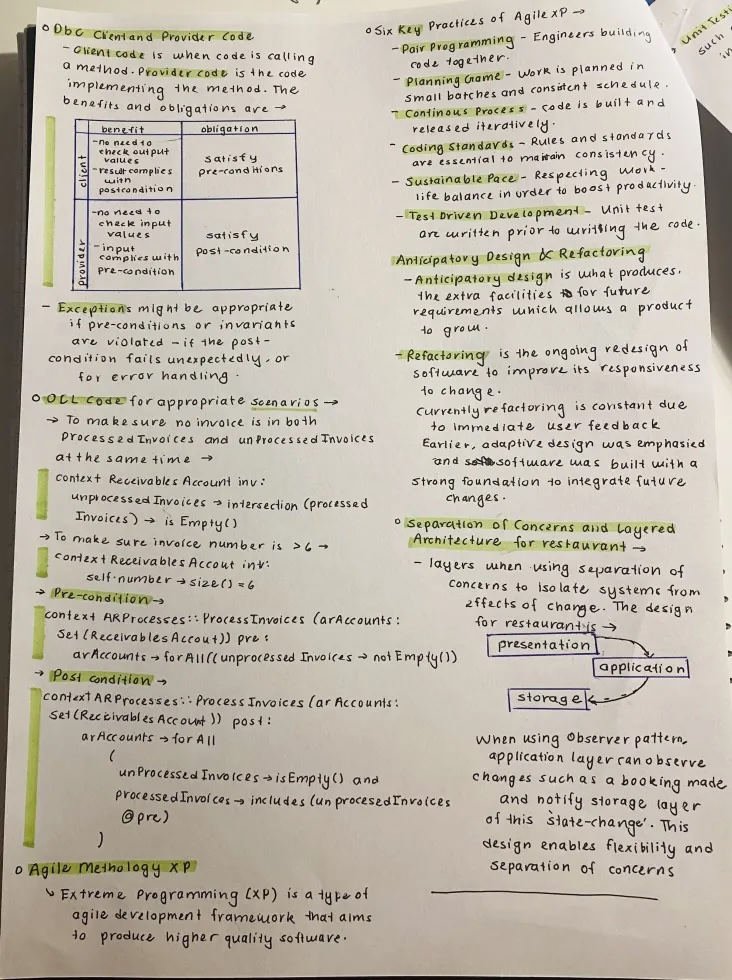 o DbC Client and Provider Code
- Client code is when code is calling
a method. Provider code is the code
implementing the method. The
benefits and obligations are →
benefit obligation
client
-no need to
check output
values
-result complies
with
postcondition
satisfy
pre-conditions
provider
-no need to
check input
values
-input
complies with
pre-condition
satisfy
post-condition
- Exceptions might be appropriate
if pre-conditions or invariants
are violated - if the post-
condition fails unexpectedly, or
for error handling.
o OCL code for appropriate scenarios →
→ To make sure no invoice is in both
processedInvoices and unProcessedInvoices
at the same time →
context Receivables Account inv:
unprocessed Invoices → intersection (processed
Invoices) → is Empty()
→ To make sure invoice number is >6 →
context Receivables Accout inv:
self.number → size() = 6
→ Pre-condition →
context ARProcesses :: ProcessInvoices (arAccounts:
Set (Receivables Accout)) pre:
arAccounts → for All ((unprocessed Invoices → notEmpty())
→ Post condition →
context ARProcesses :: Process Invoices (ar Accounts:
Set (Receivables Account)) post:
arAccounts → for All
(
unProcessed Invoices → isEmpty() and
processedInvoices → includes (un procesedInvoices
@pre)
)
o Agile Methology XP
↳ Extreme Programming (XP) is a type of
agile development framework that aims
to produce higher quality software.
o Six Key Practices of Agile XP →
- Pair Programming - Engineers building
code together.
- Planning Game - Work is planned in
small batches and consitent schedule.
- Continous Process - code is built and
released iteratively.
- Coding Standards - Rules and standards
are essential to maintain consistency.
- Sustainable Pace - Respecting work-
life balance in order to boost productivity.
- Test Driven Development - Unit test
are written prior to writing the code.
Anticipatory Design & Refactoring
- Anticipatory design is what produces
the extra facilities for future
requirements which allows a product
to grow.
- Refactoring is the ongoing redesign of
software to improve its responsiveness
to change.
Currently refactoring is constant due
to immediate user feedback
Earlier, adaptive design was emphasied
and software was built with a
strong foundation to integrate future
changes.
o Separation of Concerns and Layered
Architecture for restaurant →
- layers when using separation of
concerns to isolate systems from
effects of change. The design
for restaurant is →
presentation
application
storage
When using Observer pattern,
application layer can observe
changes such as a booking made
and notify storage layer
of this 'state-change'. This
design enables flexibility and
separation of concerns
Unit Testi
such
in